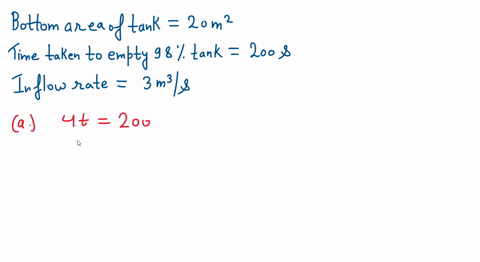 Bottom area of tank = 20 m²
Time taken to empty 98% tank = 200 s
Inflow rate = 3 m³/s
(a.) 4t = 200